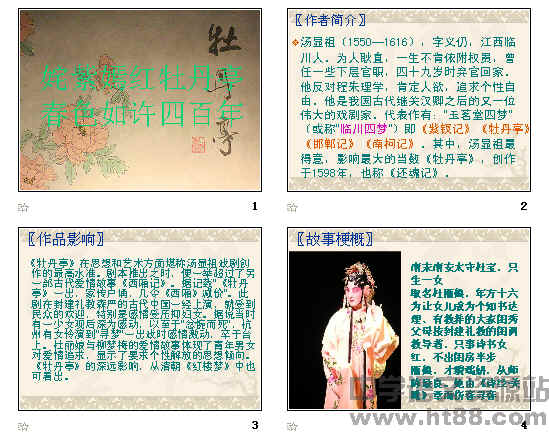 牡丹亭
姹紫嫣红牡丹亭
春色如许四百年
1
〖作者简介〗
汤显祖（1550—1616），字义仍，江西临
川人。为人耿直，一生不肯依附权贵，曾
任一些下层官职，四十九岁时弃官回家。
他反对程朱理学，肯定人欲，追求个性自
由。他是我国古代继关汉卿之后的又一位
伟大的戏剧家。代表作有："玉茗堂四梦"
（或称"临川四梦"）即《紫钗记》《牡丹亭》
《邯郸记》《南柯记》。其中，汤显祖最
得意，影响最大的当数《牡丹亭》，创作
于1598年，也称《还魂记》.
2
〖作品影响〗
《牡丹亭》在思想和艺术方面堪称汤显祖戏剧创
作的最高水准。剧本推出之时，便一举超过了另
一部古代爱情故事《西厢记》。据记载"《牡丹
亭》一出，家传户诵，几令《西厢》减价"。此
剧在封建礼教森严的古代中国一经上演，就受到
民众的欢迎，特别是感情受压抑妇女。据说当时
有一少女观后深为感动，以至于"忿惋而死"，杭
州有女伶演到"寻梦"一出戏时感情激动，卒于台
上。杜丽娘与柳梦梅的爱情故事体现了青年男女
对爱情追求，显示了要求个性解放的思想倾向。
《牡丹亭》的深远影响，从清朝《红楼梦》中也
可看出。
3
〖故事梗概〗
南宋南安太守杜宝，只
生一女
取名杜丽娘，年方十六
为让女儿成为知书达
理，有教养的大家闺秀
父母按封建礼教的闺阁
教导者，只事诗书女
红，不出闺房半步
丽娘，才貌端妍，从师
www.ht88.com
4